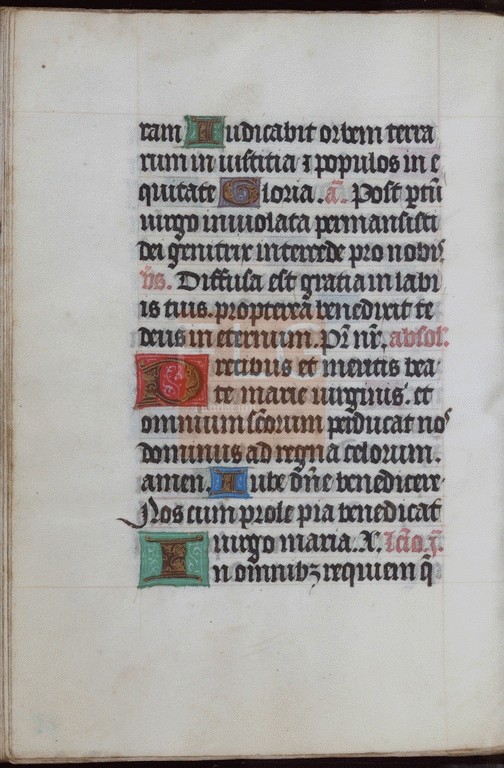 ram Iudicabit orbem terra
rum in iusticia ⁊ populos in e
quitate Gloria. a͞. Post ꝑtū
uirgo inuiolata permansisti
dei genitrix intercede pro nobis
v͞s. Diffusa est gratia in labi
is tuis. propterea benedixit te
deus in eternum. Pr͞ nr͞. absol:
Precibus et meritis bea
te marie uirginis. et
omnium sc͞orum perducat nos
dominus ad regna celorum.
amen. Iube dn͞e benedicere
Nos cum prole pia benedicat
uirgo maria. A. lc͞io. j͞.
In omnibꝫ requiem q̄